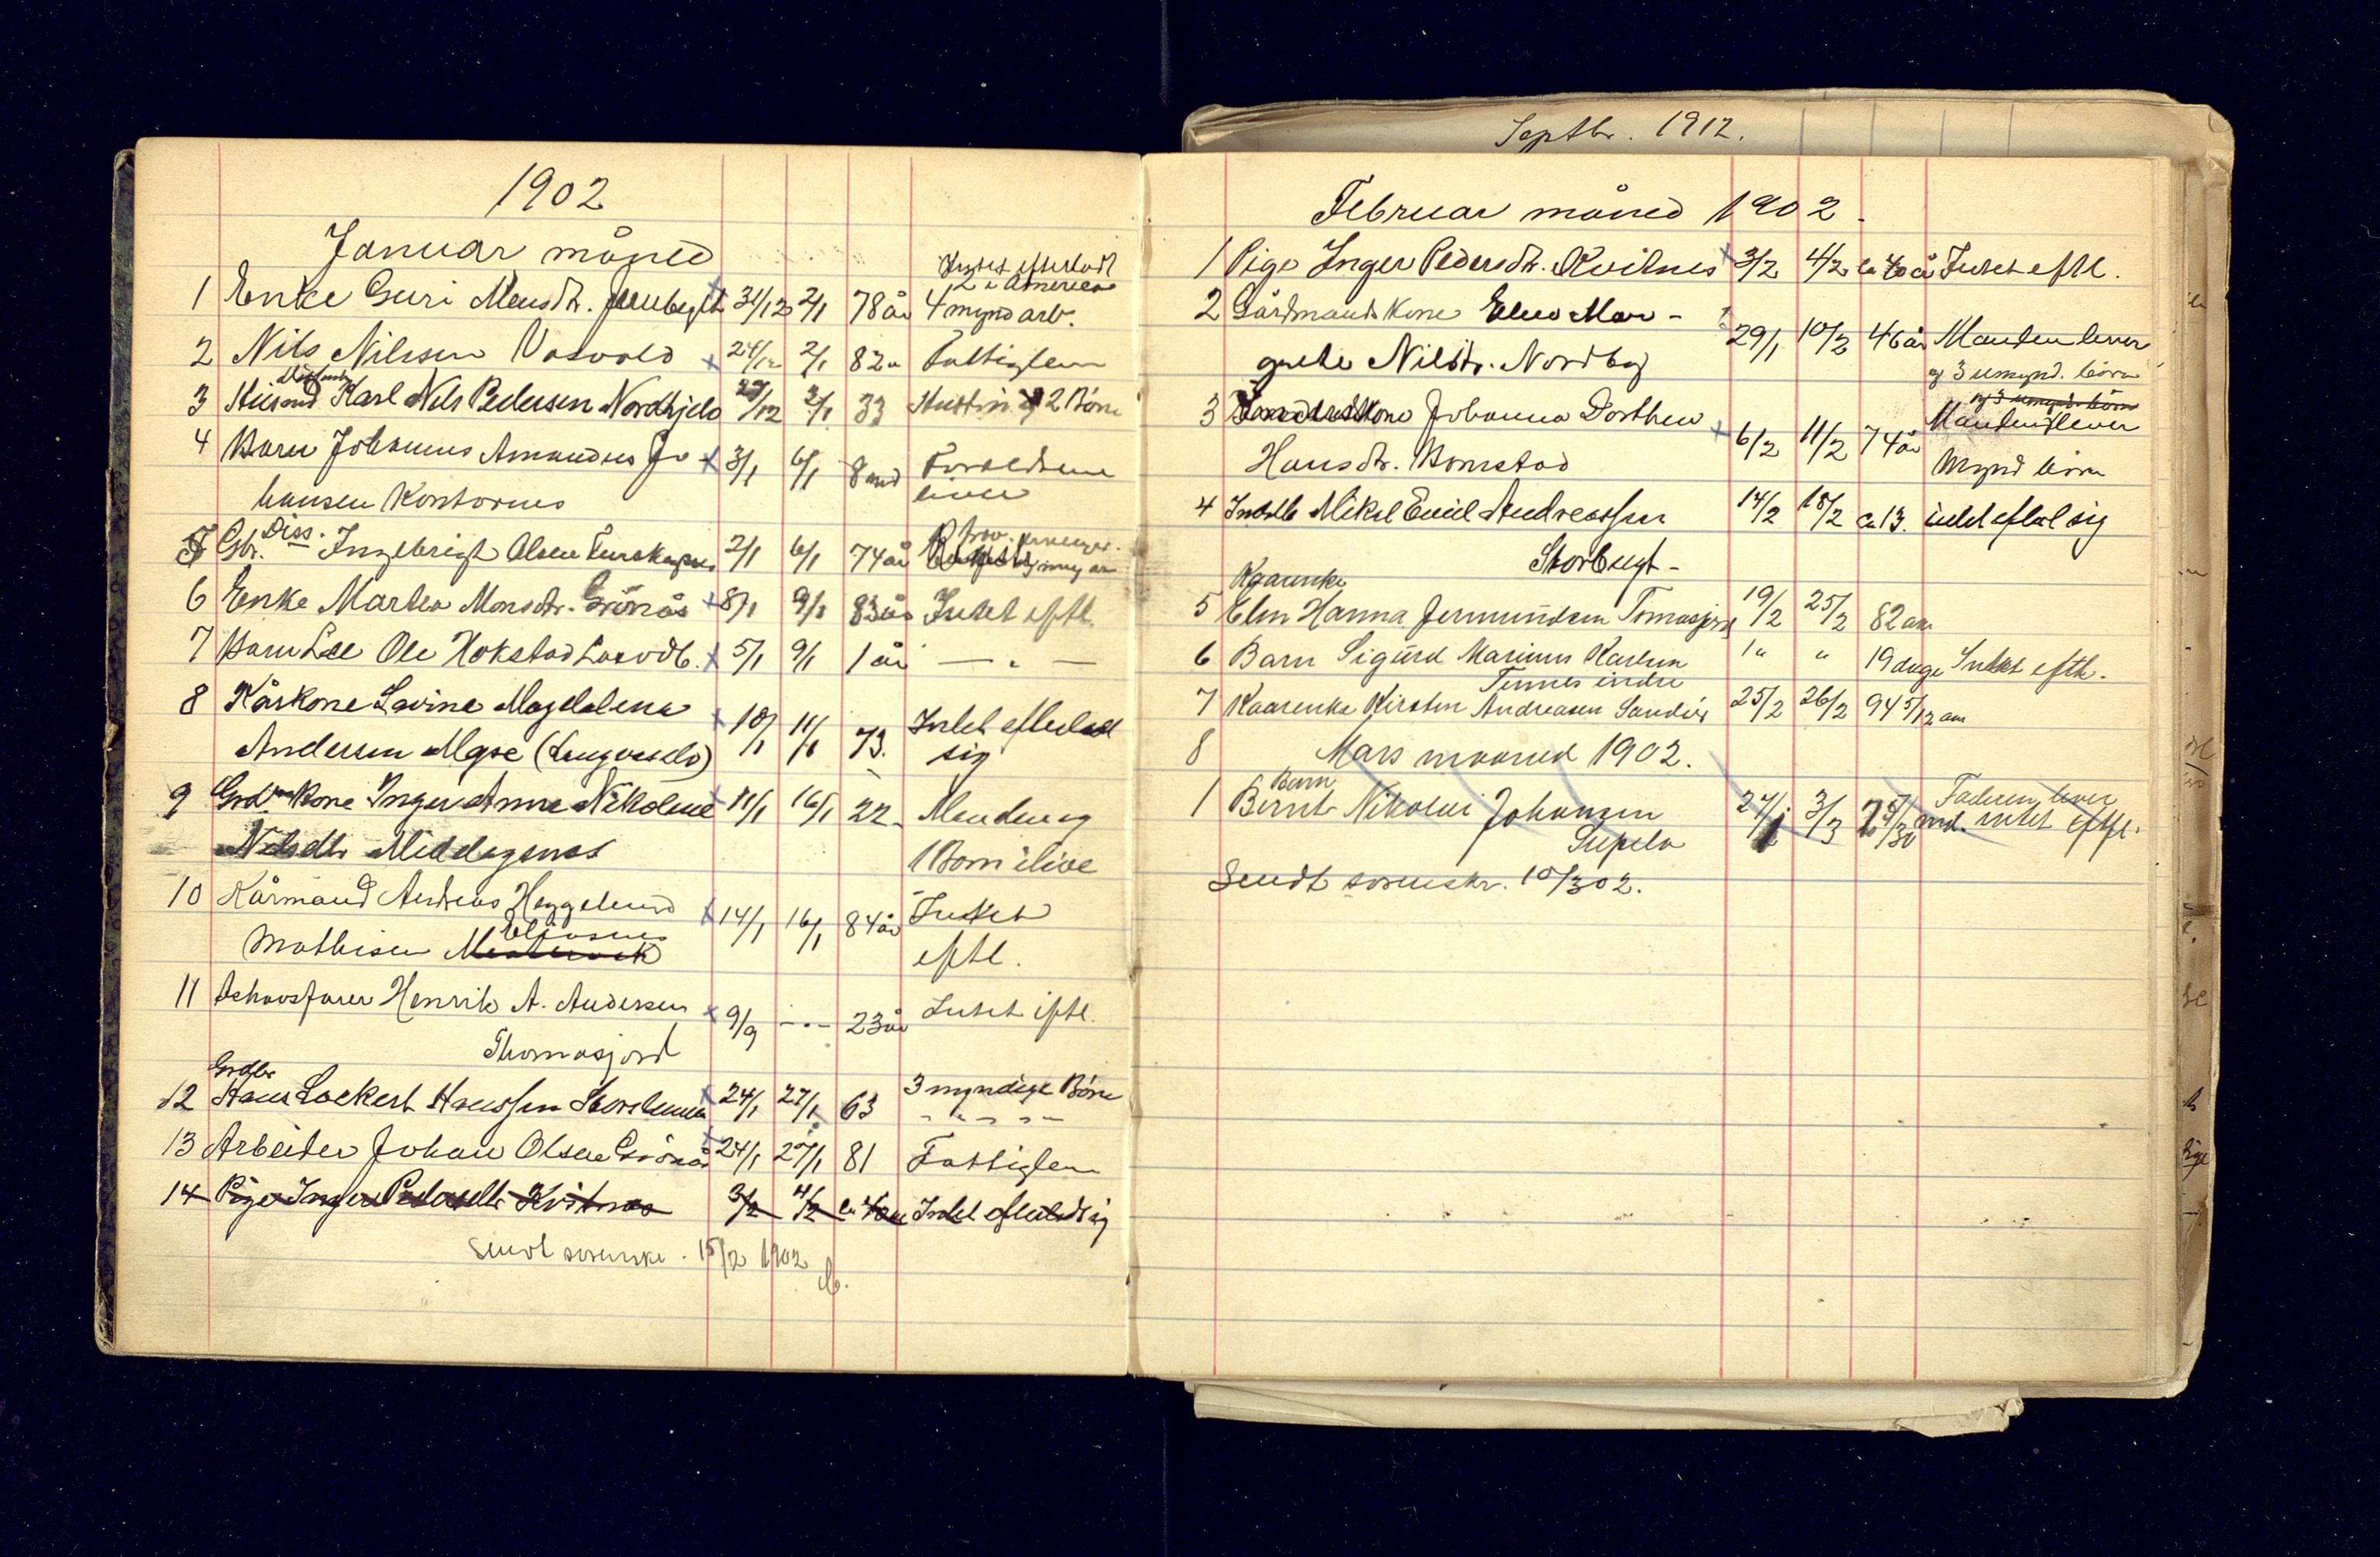 1902
Januar måned
Intet efterladt
2 i America
1 Enke Guri Monsdtr. 31/12 2/1 78 år 4 mynd arv.
2 Nils Nilssen Vasvold 24/12 2/1 82 " Fattiglem
3 Husmand Karl Nils Pedersen Nordkjeld 29/12 2/1 33 Hustru og 2 Börn
4 Barn Johannes Amandus Jo 3/1 6/1 8 md Forældrene
hansen Kantornes lever
Diss.
5 Gbr. Ingebrigt Olsen 2/1 6/1 74 år
6 Enke Martea Monsdtr. Grönås 8/1 9/1 83 år Intet eftl.
7 Barn Ole Hokstad 5/1 9/1 1 år — " —
8 Kårkone Lavine Magdalena 10/1 11/1 73. Intet efterladt
Andersen sig
9 Grdm kone Inger Anne Nikoline 11/1 16/1 22 Manden og
Nilsdtr Middagsnes 1 Barn ilive
10 Kårmand Andreas Heggelund 14/1 16/1 84 år Intet
Eliasnes
Mathisen eftl.
11 Ishavsfarer Henrik A. Andersen 9/9 -"- 23 år Intet eftl.
Thomasjord
Grdbr
12 Hans Lockert Hanssen 24/1 27/1 63 3 myndige Börn
13 Arbeider Johan Olsen Grönås 24/1 27/1 81 Fattiglem
14 Pige Inger Pedersdtr Kvitnes 3/2 4/2 ca 40 år Intet efterladt sig
Sendt sorenskr. 15/2 1902
Septbr. 1912.
Februar måned 1902.
1 Pige Inger Pedersdtr. Kvitnes 3/2 4/2 ca 40 år Intet eftl.
2 Gårdmandskone Elen Mar-
grete Nilsdtr. Nordby 29/1 10/2 46 år Manden lever
og 3 umynd. börn
og 3 umynd. börn
3 Johanna Dorthea Manden lever
Hansdtr. Bomstad 6/2 11/2 74 år Mynd börn
4 Mikal Emil Andreassen 14/2 18/2 ca 13. intet efterl sig
Storbugt-
Kaarenke
5 Elen Hanna Jermundsen Tomasjord 19/2 25/2 82 aar
6 Barn Sigurd Marinus Karlsen 1 " " 19 dage Intet eftl.
Tennes indre
7 Kaarenke Kirsten Andreasen Sandör 25/2 26/2 94 5/12 aar
8 Mars maaned 1902.
Barn
1 Bernt Nikolai Johansen 24/1 3/3 md. Faderen lever
intet eftl.
Sendt sorenskr. 10/3 02.